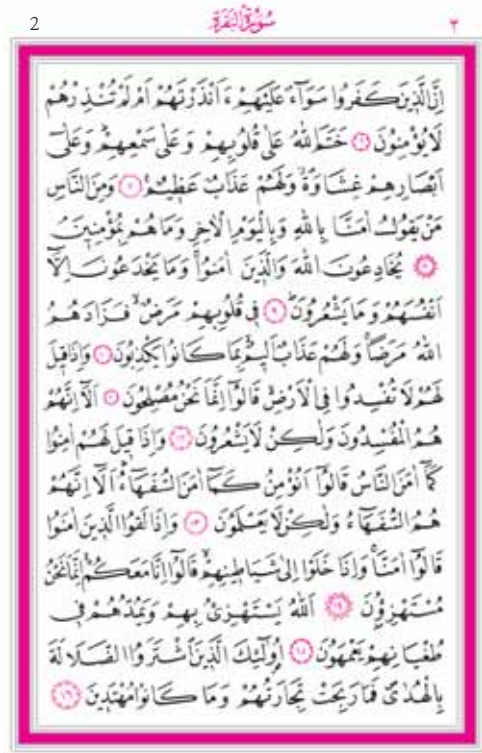 2 سُورَةُ الْبَقَرَةِ ٢
اِنَّ الَّذِينَ كَفَرُوا سَوَٓاءٌ عَلَيْهِمْ ءَاَنْذَرْتَهُمْ اَمْ لَمْ تُنْذِرْهُمْ
لَا يُؤْمِنُونَ ﴿٦﴾ خَتَمَ اللّٰهُ عَلٰى قُلُوبِهِمْ وَعَلٰى سَمْعِهِمْۜ وَعَلٰٓى
اَبْصَارِهِمْ غِشَاوَةٌۘ وَلَهُمْ عَذَابٌ عَظِيمٌ۟ ﴿٧﴾ وَمِنَ النَّاسِ
مَنْ يَقُولُ اٰمَنَّا بِاللّٰهِ وَبِالْيَوْمِ الْاٰخِرِ وَمَا هُمْ بِمُؤْمِنِينَۢ
﴿٨﴾ يُخَادِعُونَ اللّٰهَ وَالَّذِينَ اٰمَنُواۚ وَمَا يَخْدَعُونَ اِلَّٓا
اَنْفُسَهُمْ وَمَا يَشْعُرُونَۜ ﴿٩﴾ فِي قُلُوبِهِمْ مَرَضٌۙ فَزَادَهُمُ
اللّٰهُ مَرَضاًۚ وَلَهُمْ عَذَابٌ اَلِيمٌۙ بِمَا كَانُوا يَكْذِبُونَ ﴿١٠﴾ وَاِذَا قِيلَ
لَهُمْ لَا تُفْسِدُوا فِي الْاَرْضِۙ قَالُٓوا اِنَّمَا نَحْنُ مُصْلِحُونَ ﴿١١﴾ اَلَٓا اِنَّهُمْ
هُمُ الْمُفْسِدُونَ وَلٰكِنْ لَا يَشْعُرُونَ ﴿١٢﴾ وَاِذَا قِيلَ لَهُمْ اٰمِنُوا
كَمَٓا اٰمَنَ النَّاسُ قَالُٓوا اَنُؤْمِنُ كَمَٓا اٰمَنَ السُّفَهَٓاءُۜ اَلَٓا اِنَّهُمْ
هُمُ السُّفَهَٓاءُ وَلٰكِنْ لَا يَعْلَمُونَ ﴿١٣﴾ وَاِذَا لَقُوا الَّذِينَ اٰمَنُوا
قَالُٓوا اٰمَنَّاۚ وَاِذَا خَلَوْا اِلٰى شَيَاطِينِهِمْۙ قَالُٓوا اِنَّا مَعَكُمْۙ اِنَّمَا نَحْنُ
مُسْتَهْزِؤُ۫نَ ﴿١٤﴾ اَللّٰهُ يَسْتَهْزِئُ بِهِمْ وَيَمُدُّهُمْ فِي
طُغْيَانِهِمْ يَعْمَهُونَ ﴿١٥﴾ اُو۬لٰٓئِكَ الَّذِينَ اشْتَرَوُا الضَّلَالَةَ
بِالْهُدٰىۖ فَمَا رَبِحَتْ تِجَارَتُهُمْ وَمَا كَانُوا مُهْتَدِينَ ﴿١٦﴾